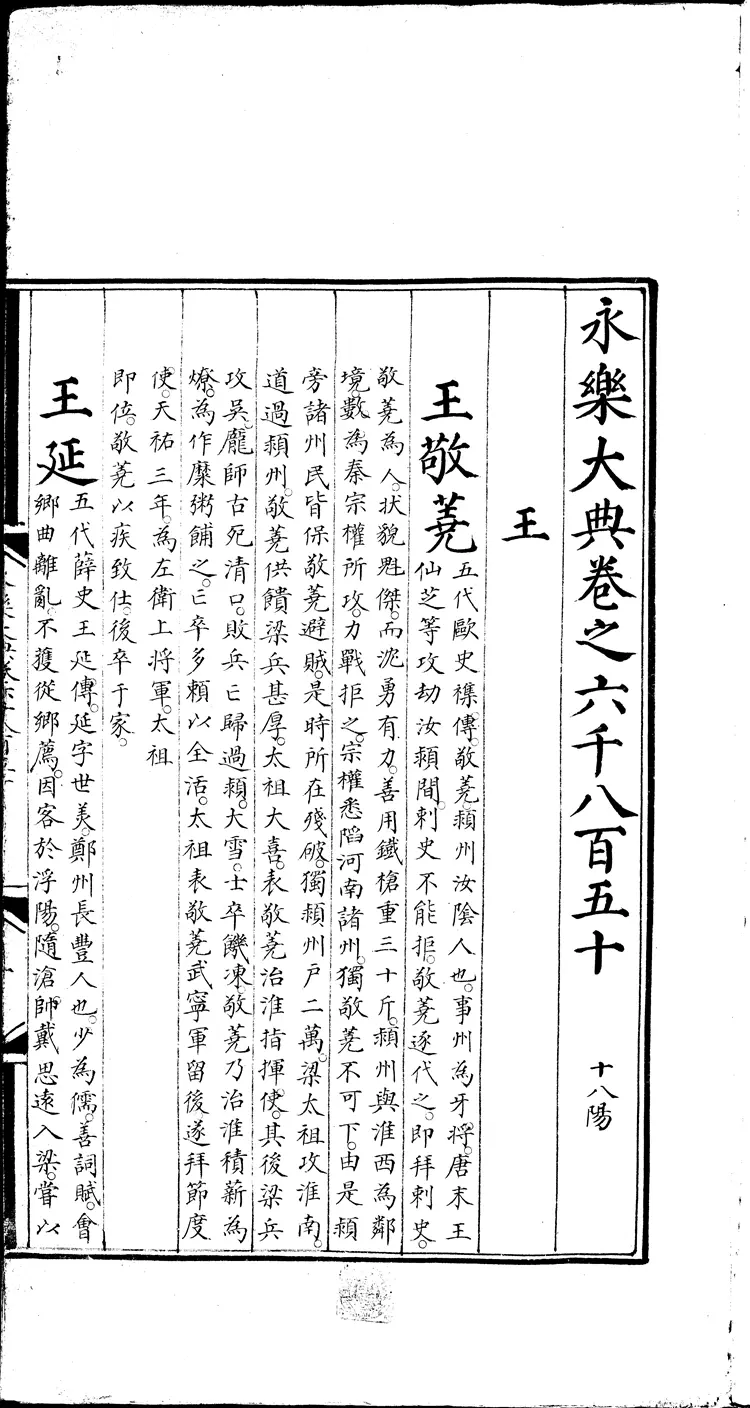 永樂大典卷之六千八百五十 十八陽
王
王敬蕘 五代歐史襍傳。敬蕘。潁州汝陰人也。事州為牙將。唐末王
仙芝等攻劫汝潁間。刺史不能拒。敬蕘逐代之。即拜刺史。
敬蕘為人。狀貌魁傑。而沉勇有力。善用鐵槍重三十斤。潁州與淮西為鄰
境。數為秦宗權所攻。力戰拒之。宗權悉䧟河南諸州。獨敬蕘不可下。由是潁
旁諸州民皆保敬蕘避賊。是時所在殘破。獨潁州戶二萬。梁太祖攻淮南。
道過潁州。敬蕘供饋梁兵甚厚。太祖大喜。表敬蕘治淮指揮使。其後梁兵
攻吳。龐師古死清口。敗兵亡歸過潁。大雪。士卒饑凍。敬蕘乃治淮積薪為
燎。為作糜粥餔之。亡卒多賴以全活。太祖表敬蕘武寧軍留後。遂拜節度
使。天祐三年。為左衛上將軍。太祖
即位。敬蕘以疾致仕。後卒于家。
王延 五代薛史王延傳。延字世美。鄭州長豐人也。少為儒。善詞賦。會
鄉曲離亂。不獲從鄉薦。因客於浮陽。隨滄帥戴思遠入梁。嘗以